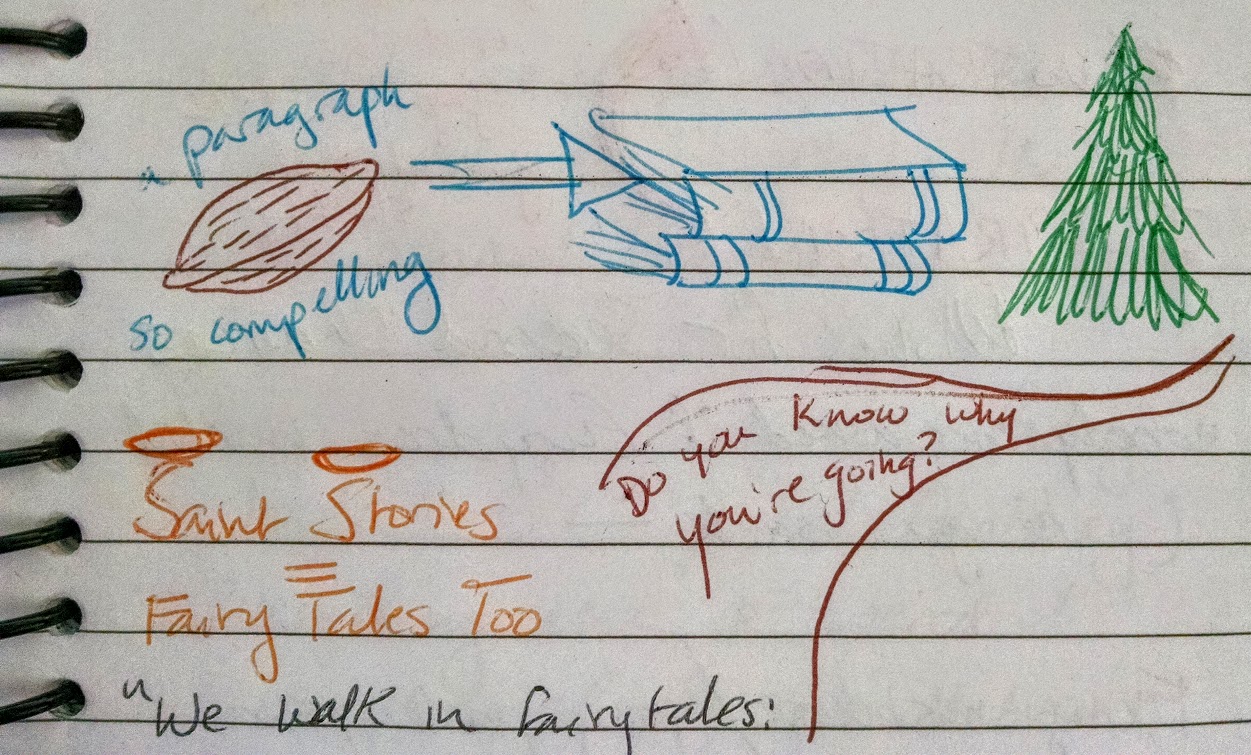 a paragraph
so compelling
Saint Stories
Fairy Tales Too
Do you know why
you're going?
"We walk in fairytales: